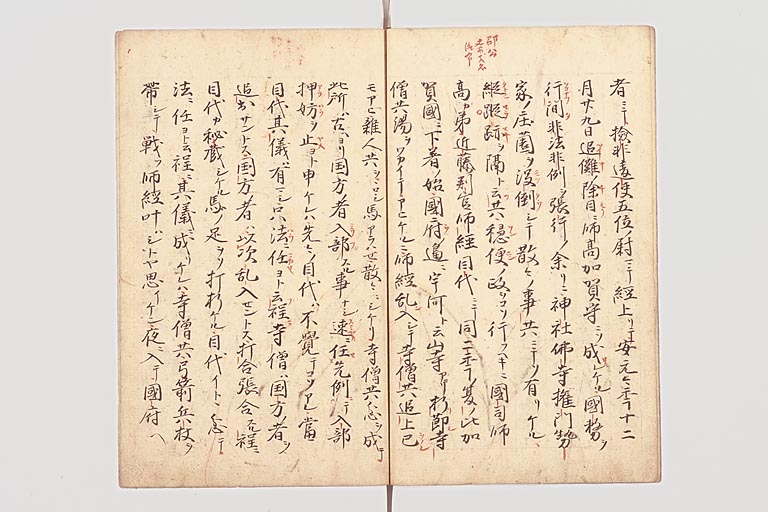 者ニテ撿非違使五位ノ尉ニテ經上リテ安元々年十二
月廿九日追儺除目ニ師高加賀守ニソ成レケル國務ヲ
行間非法非例ヲ張行ノ余リニ神社佛寺權門勢
家ノ庄薗ヲ没倒シテ散々ノ事共ニテソ有リケル
縦蹤跡ヲ隔ト云共穏便ノ政ヲコソ行フスキニ國司師
高カ弟近藤判官師經目代ニテ同二年ノ夏ノ比加
賀國ニ下著ノ始國府ノ邉ニ宇河ト云山寺アリ折節寺
僧共湯ヲワカイテアヒケルニ師經乱入シテ寺僧共追上己
モアヒ雜人共ヲヽロシ馬アラハせ散々ニシケリ寺僧共忿ヲ成テ
此所ハ古ヨリ国方者入部スル事ナシ速ニ任先例ニテ入部
押妨ヲ止ヨト申ケレハ先々ノ目代ハ不覺テコソアレ當
目代其儀ハ有マシ只法ニ任ヨト云程寺僧ハ国方ノ者ヲ
追出サントス国方者以次乱入セントス打合張合スル程ニ
目代カ秘蔵シケル馬ノ足ヲソ打折ケル目代イトヽ忿テ
法ニ任ヨト云程ニ其儀ニ成リケレハ寺僧共弓箭兵杖ヲ
帶シテ戦フ師經叶ハシトヤ思イケン夜ニ入テ國府ヘ